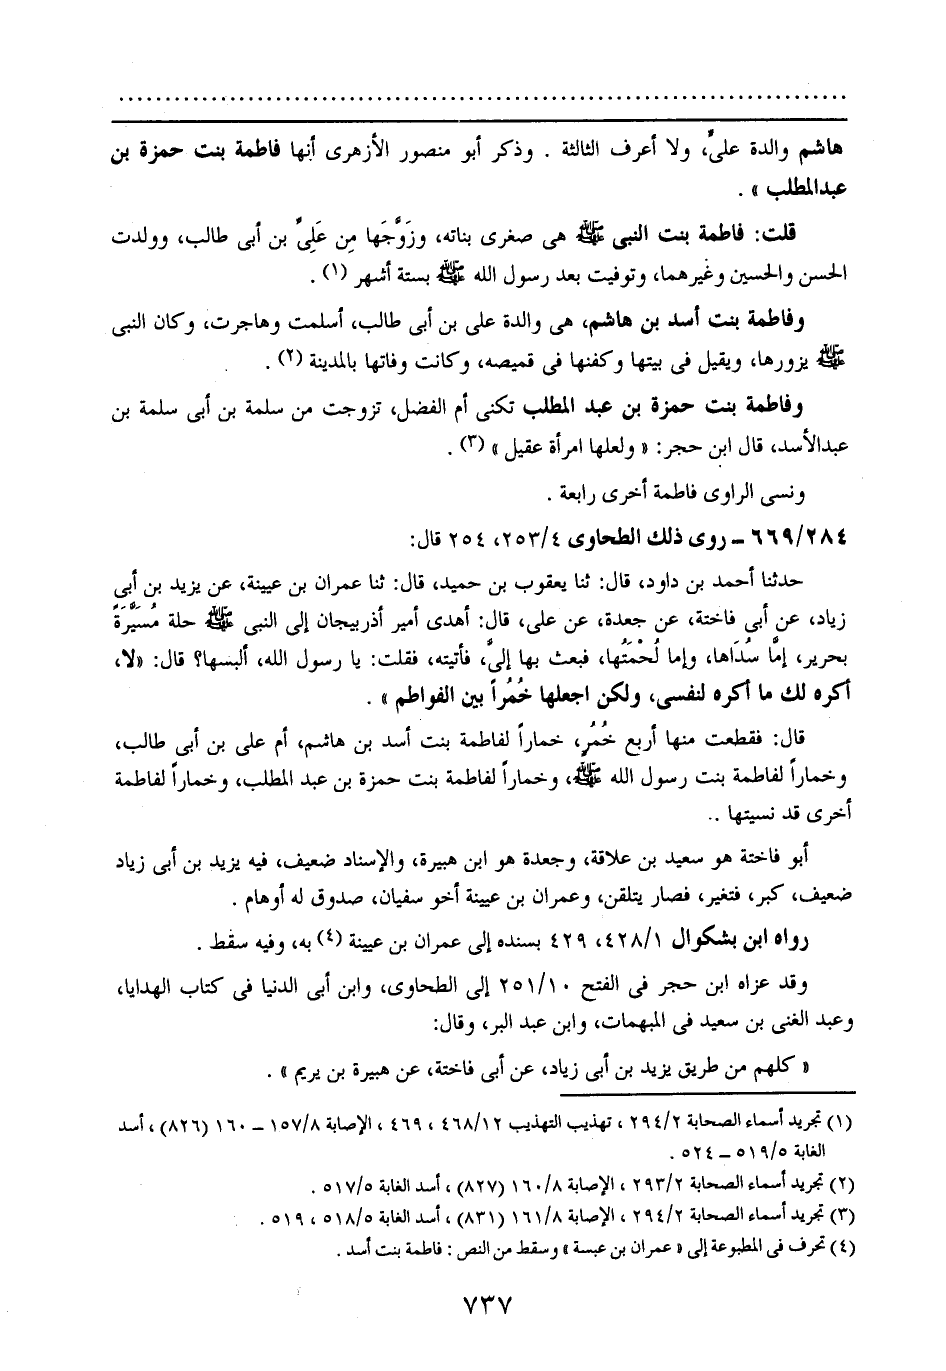 هاشم والدة علىٍّ، ولا أعرف الثالثة . وذكر أبو منصور الأزهرى أنها فاطمة بنت حمزة بن
عبدالمطلب » .
قلت: فاطمة بنت النبى ﷺ هى صغرى بناته، وزَوَّجَها مِن عَلِىٍّ بن أبى طالب، وولدت
الحسن والحسين وغيرهما، وتوفيت بعد رسول الله ﷺ بستة أشهر (١) .
وفاطمة بنت أسد بن هاشم، هى والدة على بن أبى طالب، أسلمت وهاجرت، وكان النبى
ﷺ يزورها، ويقيل فى بيتها وكفنها فى قميصه، وكانت وفاتها بالمدينة (٢) .
وفاطمة بنت حمزة بن عبد المطلب تكنى أم الفضل، تزوجت من سلمة بن أبى سلمة بن
عبدالأسد، قال ابن حجر: « ولعلها امرأة عقيل » (٣) .
ونسى الراوى فاطمة أخرى رابعة .
٦٦٩/٢٨٤ ــ روى ذلك الطحاوى ٢٥٣/٤، ٢٥٤ قال:
حدثنا أحمد بن داود، قال: ثنا يعقوب بن حميد، قال: ثنا عمران بن عيينة، عن يزيد بن أبى
زياد، عن أبى فاختة، عن جعدة، عن على، قال: أهدى أمير أذربيجان إلى النبى ﷺ حلة مُسَيَّرَةً
بحرير، إمَّا سُدَاها، وإما لُحْمَتُها، فبعث بها إلىَّ، فأتيته، فقلت: يا رسول الله، ألبسها؟ قال: «لا،
أكره لك ما أكره لنفسى، ولكن اجعلها خُمُراً بين الفواطم » .
قال: فقطعت منها أربع خُمُرٍ، خماراً لفاطمة بنت أسد بن هاشم، أم على بن أبى طالب،
وخماراً لفاطمة بنت رسول الله ﷺ، وخماراً لفاطمة بنت حمزة بن عبد المطلب، وخماراً لفاطمة
أخرى قد نسيتها ..
أبو فاختة هو سعيد بن علاقة، وجعدة هو ابن هبيرة، والإسناد ضعيف، فيه يزيد بن أبى زياد
ضعيف، كبر، فتغير، فصار يتلقن، وعمران بن عيينة أخو سفيان، صدوق له أوهام .
رواه ابن بشكوال ٤٢٨/١، ٤٢٩ بسنده إلى عمران بن عيينة (٤) به، وفيه سقط .
وقد عزاه ابن حجر فى الفتح ٢٥١/١٠ إلى الطحاوى، وابن أبى الدنيا فى كتاب الهدايا،
وعبد الغنى بن سعيد فى المبهمات، وابن عبد البر، وقال:
« كلهم من طريق يزيد بن أبى زياد، عن أبى فاختة، عن هبيرة بن يريم » .
(١) تجريد أسماء الصحابة ٢٩٤/٢ ، تهذيب التهذيب ٤٦٨/١٢ ، ٤٦٩ ، الإصابة ١٥٧/٨ ــ ١٦٠ (٨٢٦) ، أسد
الغابة ٥١٩/٥ ــ ٥٢٤ .
(٢) تجريد أسماء الصحابة ٢٩٣/٢ ، الإصابة ١٦٠/٨ (٨٢٧) ، أسد الغابة ٥١٧/٥ .
(٣) تجريد أسماء الصحابة ٢٩٤/٢ ، الإصابة ١٦١/٨ (٨٣١) ، أسد الغابة ٥١٨/٥ ، ٥١٩ .
(٤) تحرف فى المطبوعة إلى « عمران بن عبسة » وسقط من النص : فاطمة بنت أسد .
٧٣٧